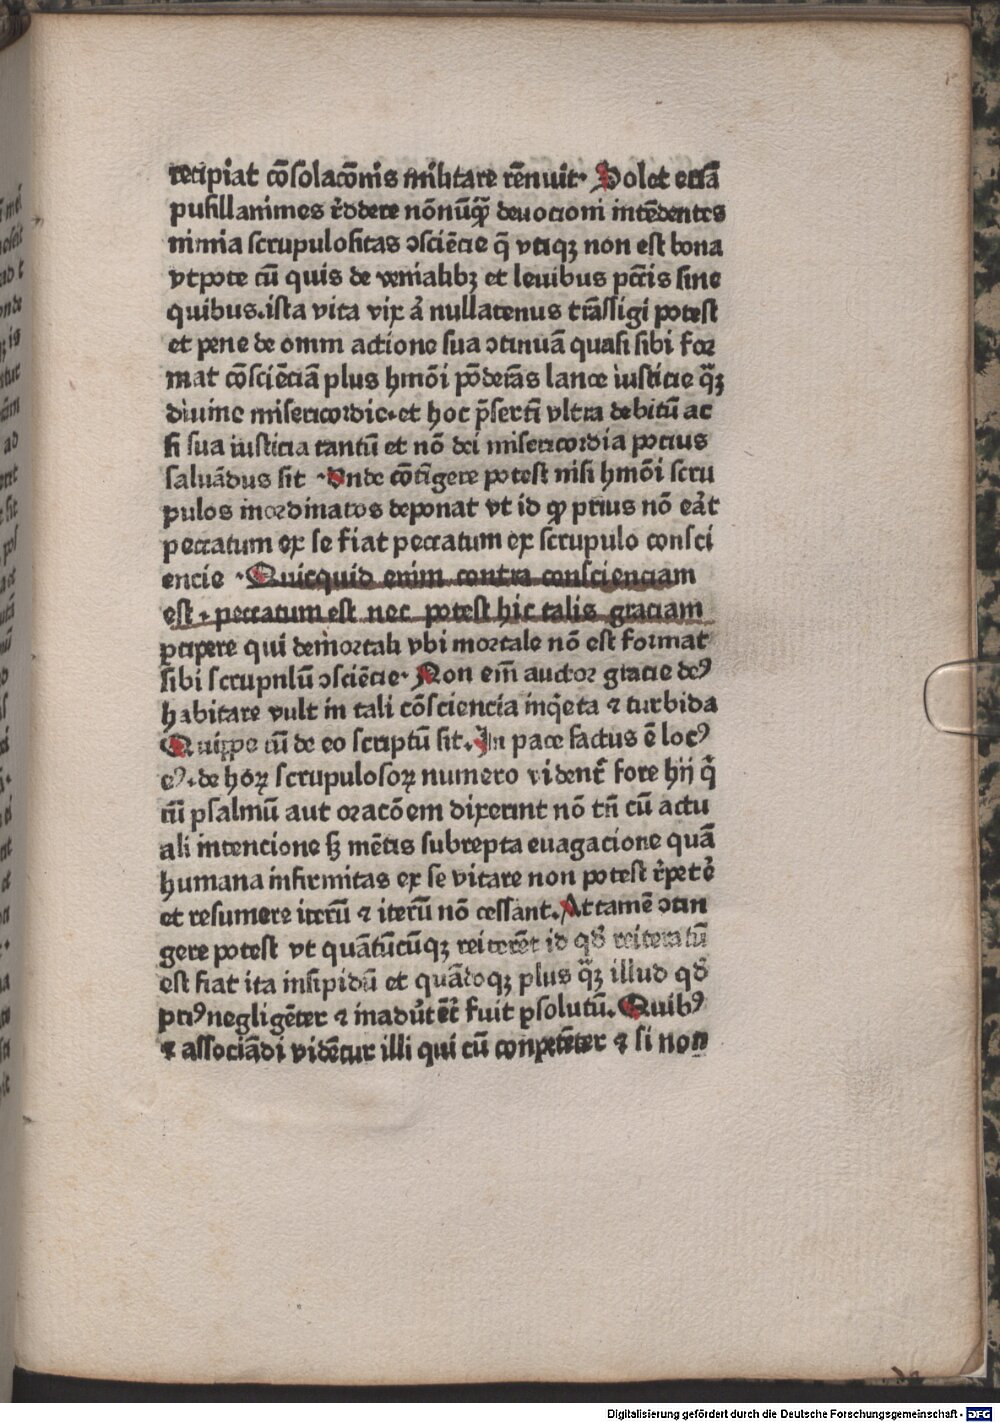 recipiat cōsolacōnis militare rēnuit· Solet eciā
pusillanimes r̄ddere nōnūq̄ȝ deuocioni intēdentes
nimia scrupulositas ↄsciēcie q̄ vtiqꝫ non est bona
vtpote cū quis de venialibꝫ et leuibus pctīs sine
quibus·ista vita vix aͥ nullatenus trāsligi potest
et pene de omni actione sua ↄtinuā quasi sibi foꝛ
mat cōsciēciā plus hmōi pōderās lance iusticie q̄ꝫ
diuine misericoꝛdie·et hoc p̄sertī vltra debitū ac
si sua iusticia tantū et nō dei misericoꝛdia pocius
saluādus sit ·Vnde cōtīgere potest nisi hmōi scru
pulos inoꝛdinatos deponat vt id ꝙ prius nō eāt
peccatum ex se fiat peccatum ex scrupulo consci
encie ·Quicquid enim contra conscienciam
est · peccatum est nec potest hic talis graciam
ꝑcipere qui demoꝛtali vbi moꝛtale nō est foꝛmat
sibi scrupulū ↄsciēcie· Non em̄ auctoꝛ gracie deꝰ
habitare vult in tali cōsciencia inq̄eta ⁊ turbida
Quippe cū de eo scriptū sit·In pace factus ē locꝰ
eꝰ·de hoꝝ scrupulosoꝝ numero vident̄ fore hij q̄
cū psalmū aut oꝛacōem dixerint nō tn̄ cū actu
ali intencione sꝫ mētis subrepta euagacione quā
humana infirmitas ex se vitare non potest r̄petūt
et resumere iterū ⁊ iterū nō cessant·Attamē ↄtin
gere potest vt quātūcūqꝫ reiterēt id qđ reiteratū
est fiat ita insipidū et quādoqꝫ plus q̄ꝫ illud qđ
pͥꝰ negligēter ⁊ inaduͥtēt̄ fuit ꝑsolutū·Quibꝰ
⁊ associādi vidētur illi qui cū conpetēter ⁊ si non
Digitalisierung gefördert durch die Deutsche Forschungsgemeinschaft - DFG